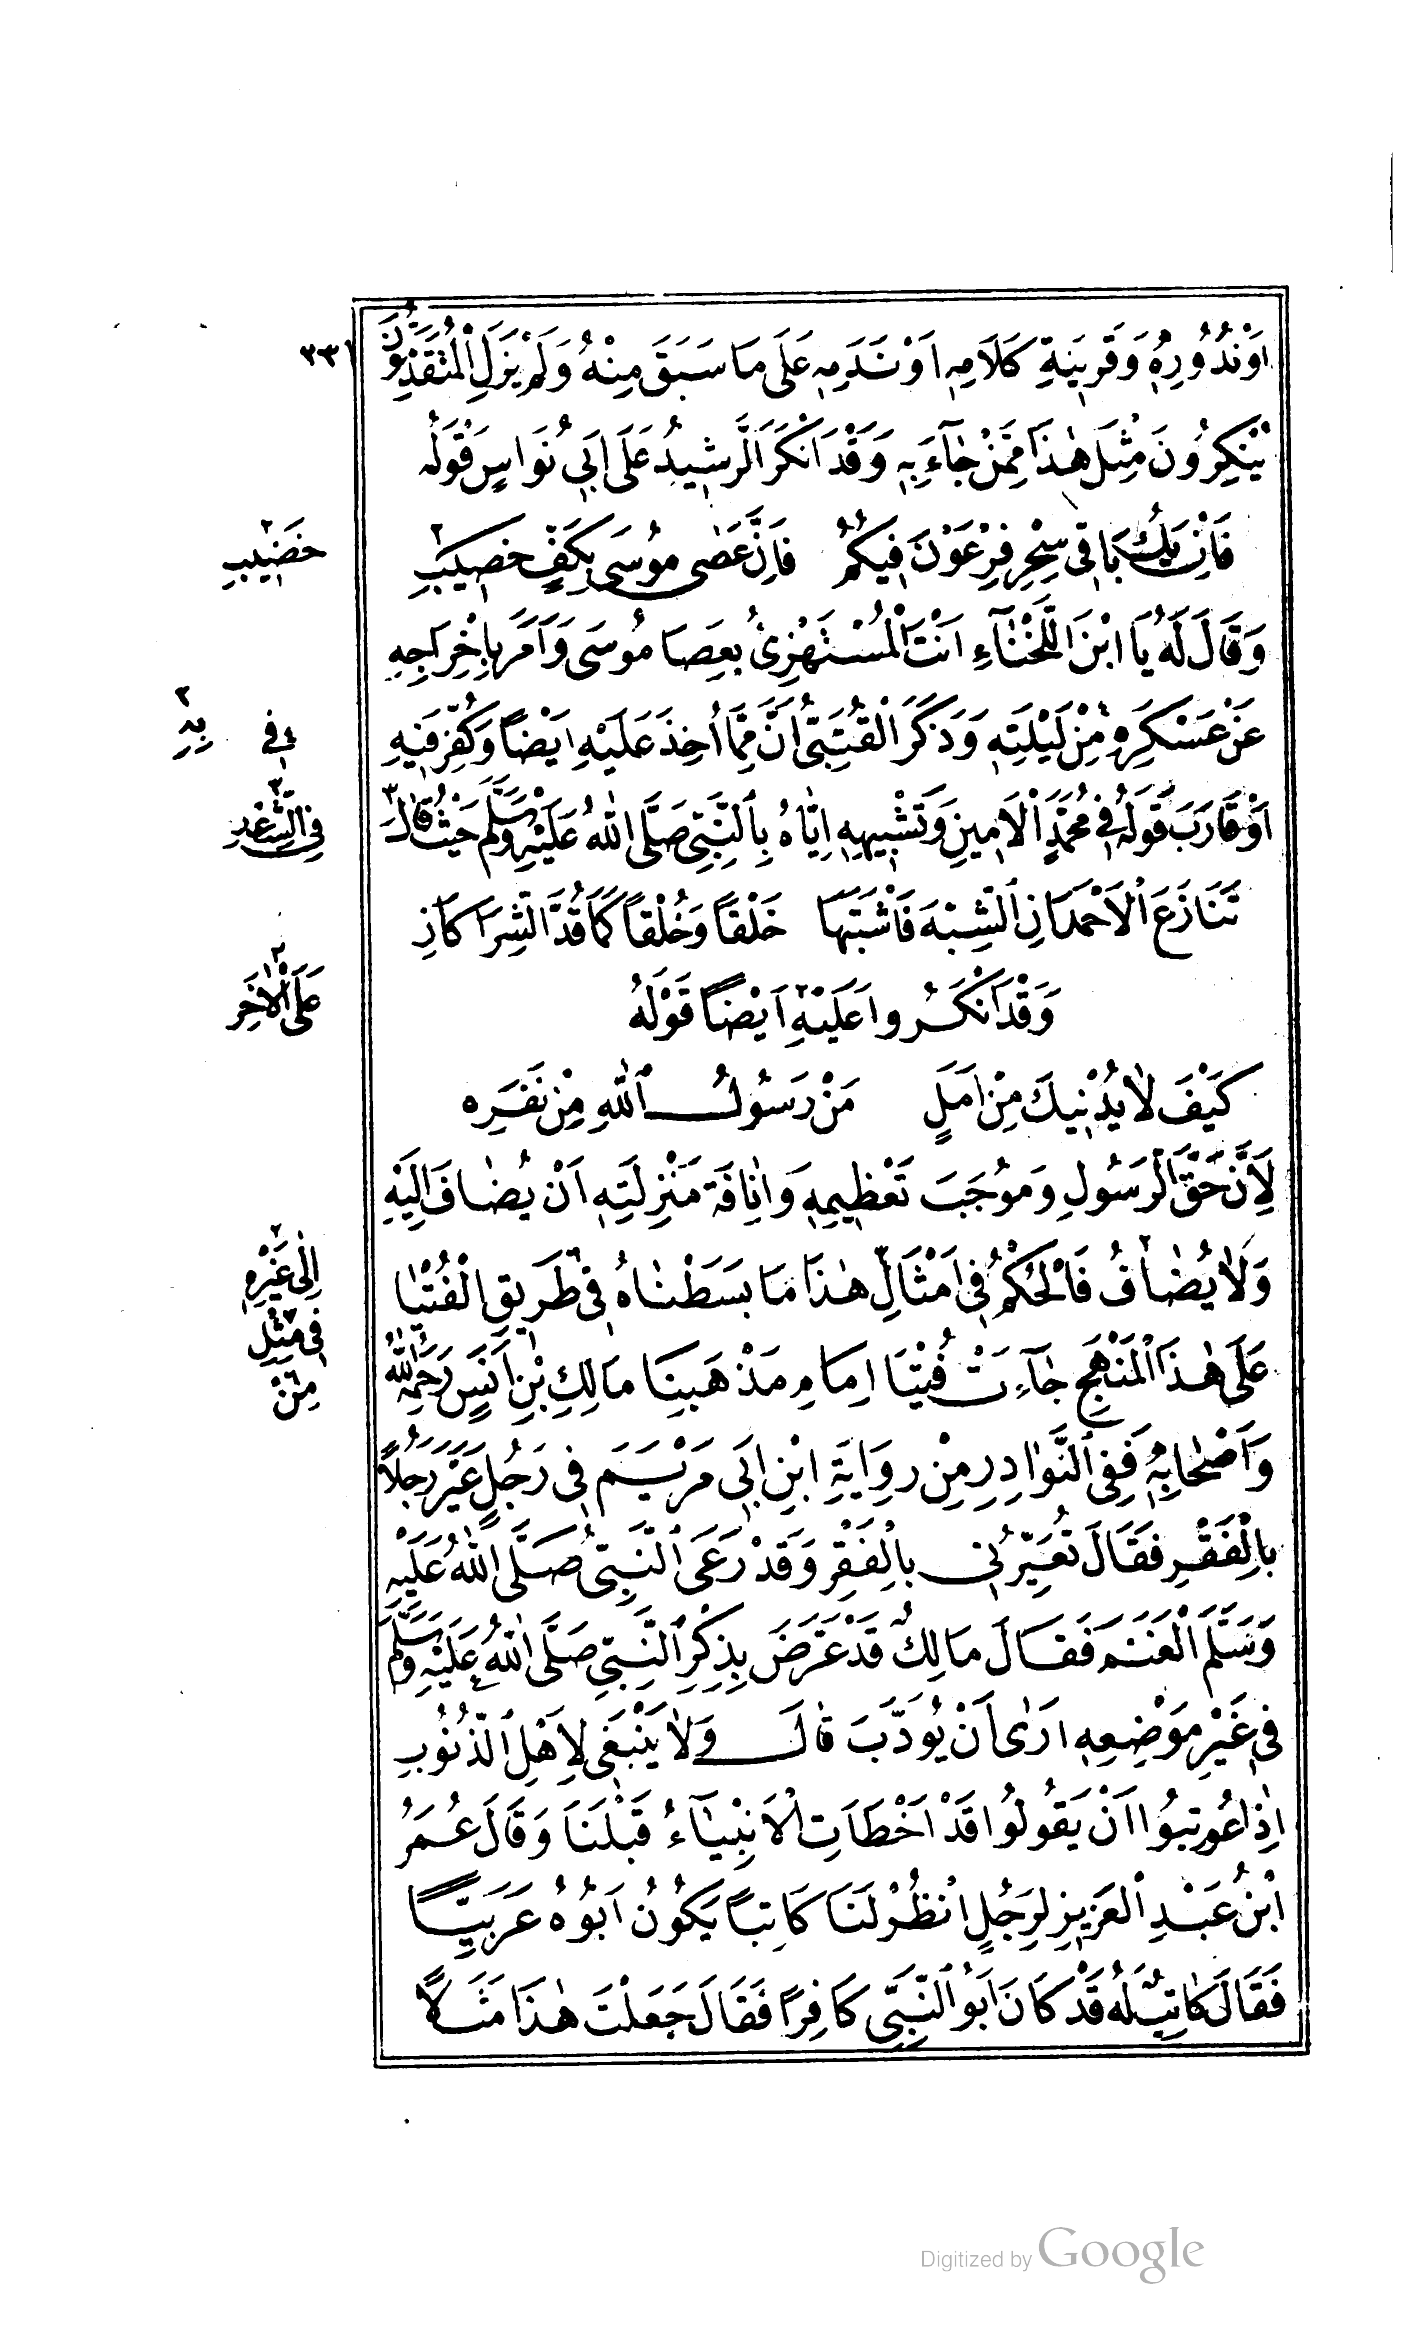 ٣٣١
اَوْ نُدُورِهٖ وَقَرِينَةِ كَلَامِهٖ اَوْ نَدَمِهٖ عَلَى مَا سَبَقَ مِنْهُ وَلَمْ يَزَلِ الْمُتَقَدِّمُونَ
يُنْكِرُونَ مِثْلَ هٰذَا مِمَّنْ جَآءَ بِهٖ وَقَدْ اَنْكَرَ الرَّشِيدُ عَلَى اَبِي نُوَاسٍ قَوْلَهُ
فَاِنْ يَكُ بَاقِي سِحْرِ فِرْعَوْنَ فِيكُمُ فَاِنَّ عَصٰى مُوسَى بِكَفِّ خَصِيبِ
خَضِيبِ
وَقَالَ لَهُ يَا ابْنَ اللَّخْنَآءِ اَنْتَ الْمُسْتَهْزِئُ بِعَصَا مُوسَى وَاَمَرَ بِاِخْرَاجِهِ
عَنْ عَسْكَرِهِ مِنْ لَيْلَتِهٖ وَذَكَرَ الْقُتَيْبِيُّ اَنَّ مِمَّا اُخِذَ عَلَيْهِ اَيْضًا وَكُفِّرَ فِيهِ
فِي
بِهِ
اَوْ قَارَبَ قَوْلُهُ فِي مُحَمَّدٍ الْاَمِينِ وَتَشْبِيهِهِ اِيَّاهُ بِالنَّبِيِّ صَلَّى اللّٰهُ عَلَيْهِ وَسَلَّمَ حَيْثُ قَالَ
فِي الشِّعْرِ
تَنَازَعَ الْاَحْمَدَانِ الشِّبْهَ فَاشْتَبَهَا خَلْقًا وَخُلْقًا كَمَا قُدَّ الشِّرَاكَانِ
وَقَدْ اَنْكَرُوا عَلَيْهِ اَيْضًا قَوْلَهُ
عَلَى الْاٰخَرِ
كَيْفَ لَا يُدْنِيكَ مِنْ اَمَلٍ مَنْ رَسُولُ اللّٰهِ مِنْ نَفَرِه
لِاَنَّ حَقَّ الرَّسُولِ وَمُوجَبَ تَعْظِيمِهٖ وَاِنَافَةَ مَنْزِلَتِهٖ اَنْ يُضَافَ اِلَيْهِ
وَلَا يُضَافُ فَالْحُكْمُ فِي اَمْثَالِ هٰذَا مَا بَسَطْنَاهُ فِي طَرِيقِ الْفُتْيَا
اِلٰى غَيْرِهِ
فِي مِثْلِ
عَلَى هٰذَا الْمَنْهَجِ جَآءَتْ فُتْيَا اِمَامِ مَذْهَبِنَا مَالِكِ بْنِ اَنَسٍ رَحِمَهُ اللّٰهُ
مِنْ
وَاَصْحَابِهِ فَفِي النَّوَادِرِ مِنْ رِوَايَةِ ابْنِ اَبِي مَرْيَمَ فِي رَجُلٍ عَيَّرَ رَجُلاً
بِالْفَقْرِ فَقَالَ تُعَيِّرُنِي بِالْفَقْرِ وَقَدْ رَعَى النَّبِيُّ صَلَّى اللّٰهُ عَلَيْهِ
وَسَلَّمَ الْغَنَمَ فَقَالَ مَالِكٌ قَدْ عَرَّضَ بِذِكْرِ النَّبِيِّ صَلَّى اللّٰهُ عَلَيْهِ وَسَلَّمَ
فِي غَيْرِ مَوْضِعِهٖ اَرٰى اَنْ يُؤَدَّبَ قَالَ وَلَا يَنْبَغِي لِاَهْلِ الذُّنُوبِ
اِذَا عُوتِبُوا اَنْ يَقُولُوا قَدْ اَخْطَاَتِ الْاَنْبِيَآءُ قَبْلَنَا وَقَالَ عُمَرُ
ابْنُ عَبْدِ الْعَزِيزِ لِرَجُلٍ اُنْظُرْ لَنَا كَاتِبًا يَكُونُ اَبُوهُ عَرَبِيًّا
فَقَالَ كَاتِبٌ لَهُ قَدْ كَانَ اَبُو النَّبِيِّ كَافِرًا فَقَالَ جَعَلْتَ هٰذَا مَثَلاً
Digitized by Google